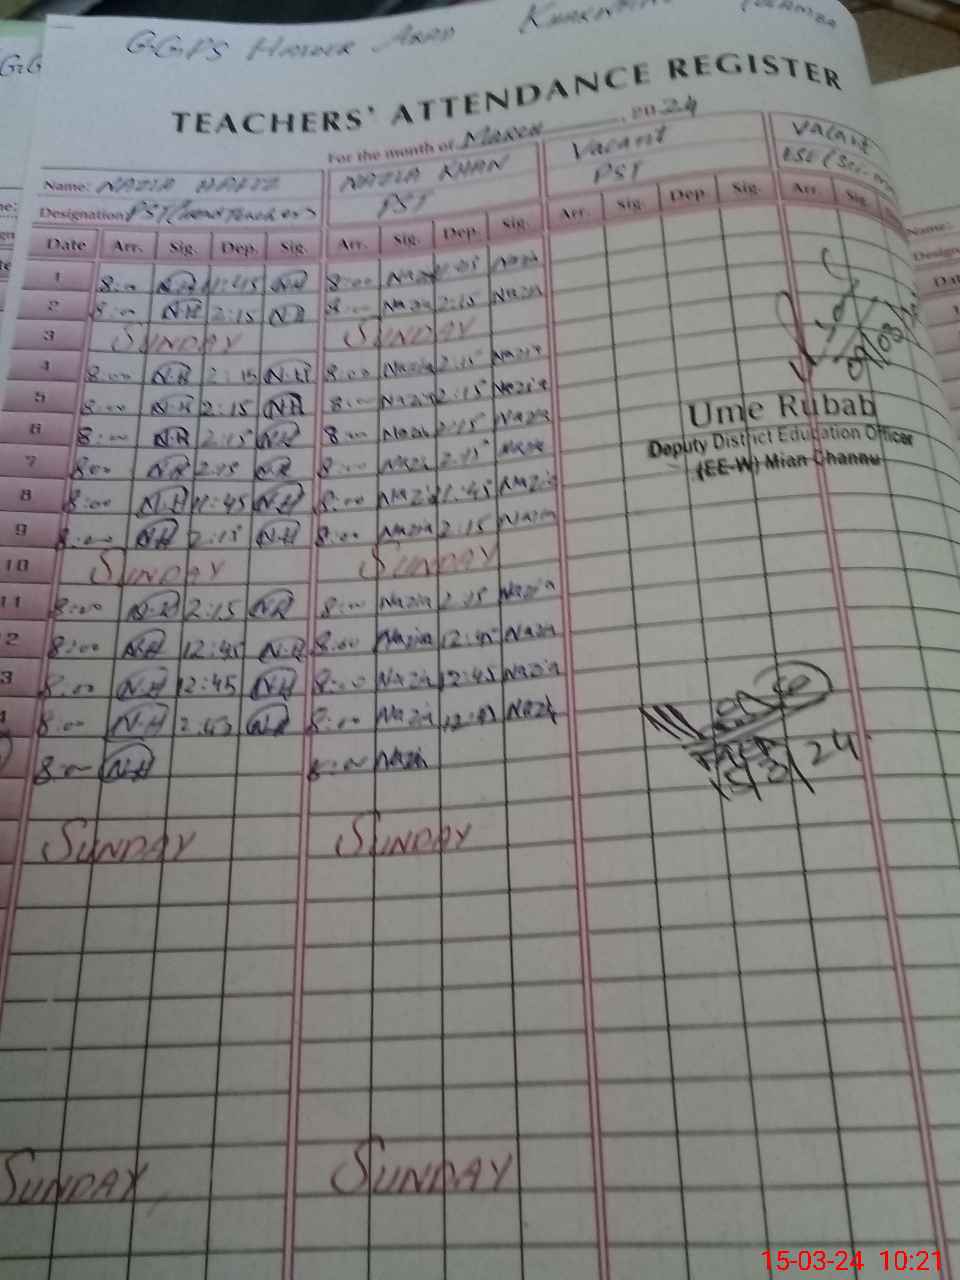 GGPS
TEACHERS' ATTENDANCE REGISTER
For the month of March, 2024
Name: NAZIA NAZIA KHAN Vacant Vacant
Designation PST (Head Teacher) PST PST ESE (Sci-
Date Arr. Sig. Dep. Sig. Arr. Sig. Dep. Sig. Arr. Sig. Dep. Sig. Arr. Sig.
1 8:00 NH 11:45 NH 8:00 Nazia Nazia
2 8:00 NH 2:15 NH 8:00 Nazia 2:15 Nazia
3 SUNDAY SUNDAY
4 8:00 NH 2:15 NH 8:00 Nazia 2:15 Nazia
5 8:00 NH 2:15 NH 8:00 Nazia 2:15 Nazia
6 8:00 NH 2:15 NH 8:00 Nazia 2:15 Nazia
7 8:00 NH 2:15 NH 8:00 Nazia 2:15 Nazia
8 8:00 NH 11:45 NH 8:00 Nazia 11:45 Nazia
9 8:00 NH 2:15 NH 8:00 Nazia 2:15 Nazia
10 SUNDAY SUNDAY
11 8:00 NH 2:15 NH 8:00 Nazia 2:15 Nazia
2 8:00 NH 12:45 NH 8:00 Nazia 12:45 Nazia
3 8:00 NH 12:45 NH 8:00 Nazia 12:45 Nazia
8:00 NH 2:45 NH 8:00 Nazia 12:45 Nazia
8:00 NH 8:00 Nazia
SUNDAY SUNDAY
SUNDAY SUNDAY
Ume Rubab
Deputy District Education Officer
(EE-W) Mian Channu
15/3/24
15-03-24 10:21